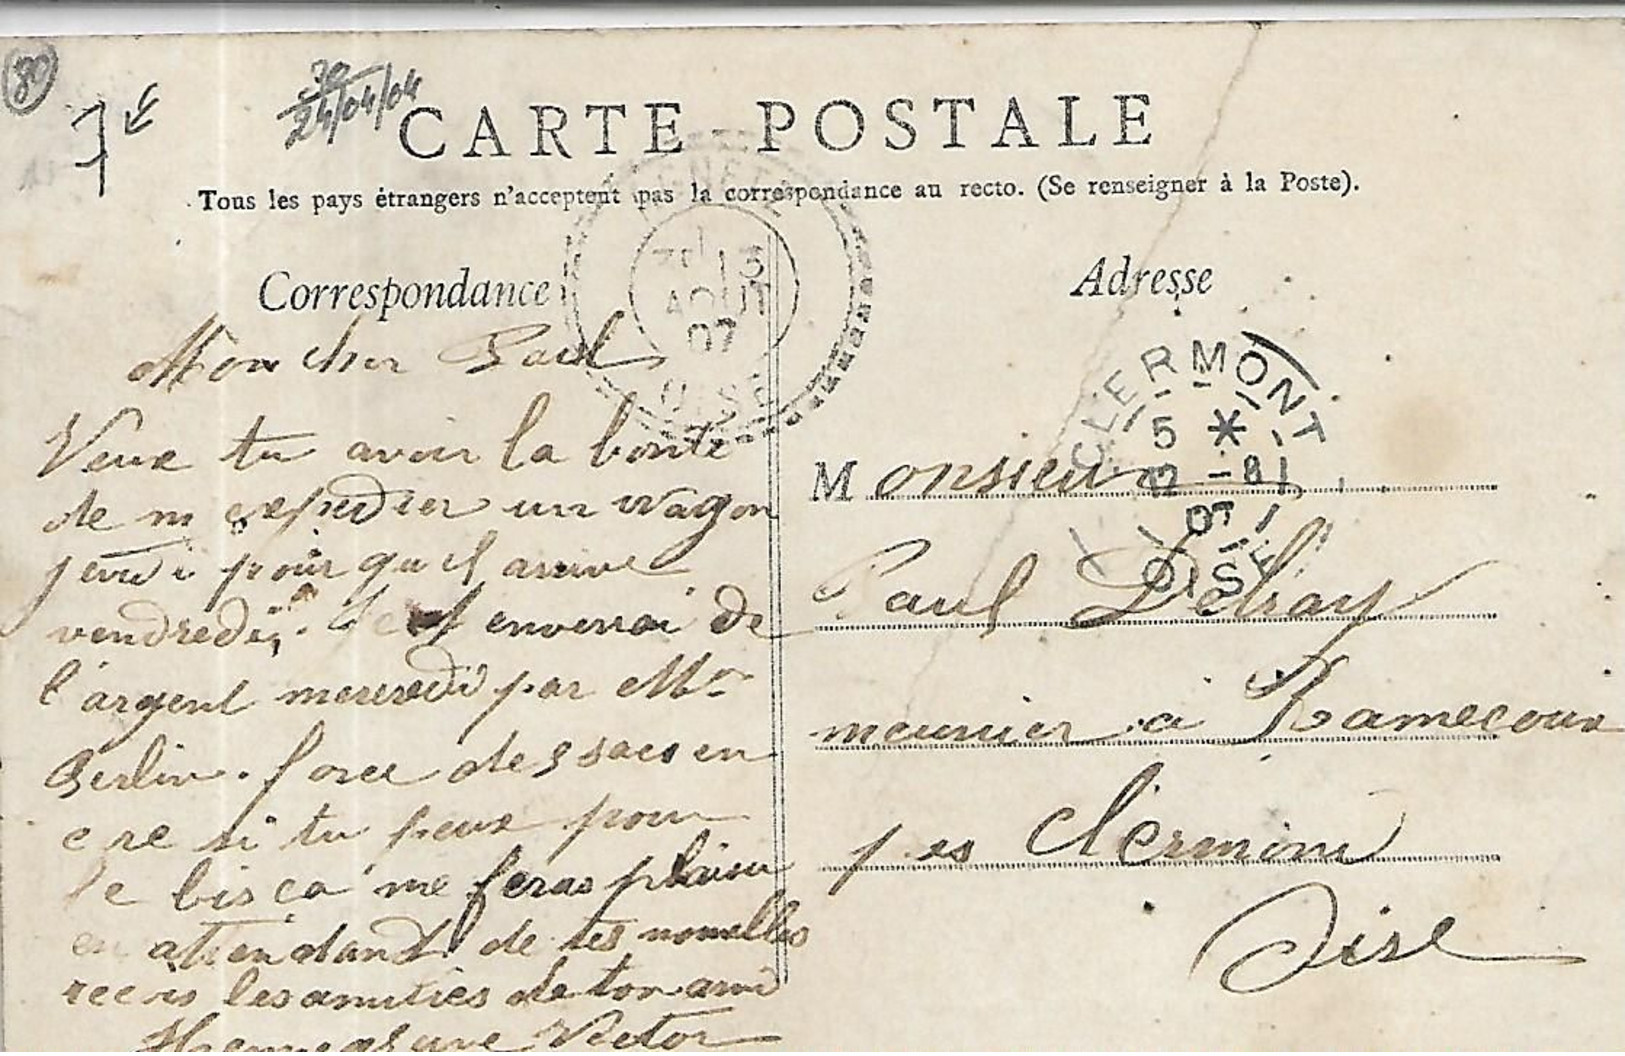 80
30
24/04/04
CARTE POSTALE
Tous les pays étrangers n'acceptent pas la correspondance au recto. (Se renseigner à la Poste).
Correspondance
Adresse
13
AOUT
07
OISE
CLERMONT
5 *
12 - 8
07
OISE
Mon cher Paul
Veux tu avoir la bonté
de m expedier un wagon
jeudi pour qu il arrive
vendredi, enverrai de
l'argent mercredi par Mr
Berlin. force des sacs en
c re si tu peux pour
le bis ca me feras plaisir
en attendant de tes nouvelles
recois les amities de ton ami
Victor
Monsieur
Paul Delray
meunier a Ramecour
pes Clermont
Oise